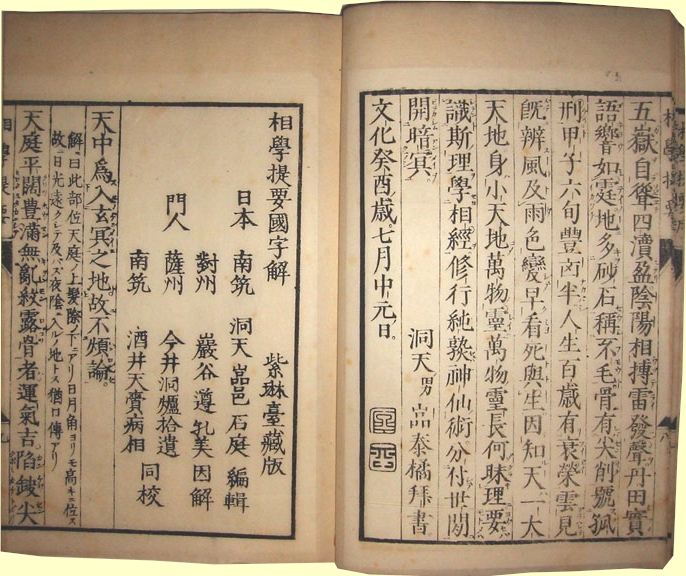 五嶽自聳四瀆盈陰陽相摶雷發聲丹田實
語響如霆地多砂石稱不毛骨有尖削號孤
刑甲子六旬豐凶半人生百歲有衰榮雲見
旣辨風及雨色變早看死與生因知天一大
天地身小天地萬物靈萬物靈長何昧理要
識斯理學相經修行純熟神仙術分付世間
開暗冥
文化癸酉歳七月中元日
洞天男嵓泰橘拜書
相學提要國字解
紫琳臺藏版
日本 南筑 洞天嵓邑石庭 編輯
對州 巖谷遵乳美因解
門人 薩州 今井洞爐拾遺
南筑 酒井天賚病相 同校
天中為入玄冥之地故不煩論
解曰此部位天庭ノ上髮際ノ下ニアリ日月角ヨリモ高キニ位ス
故ニ日光遠クシテ及バズ夜陰ニ入ルノ地トス猶口傳アリ
天庭平闊豊滿無亂紋露骨者運氣吉陷缺尖